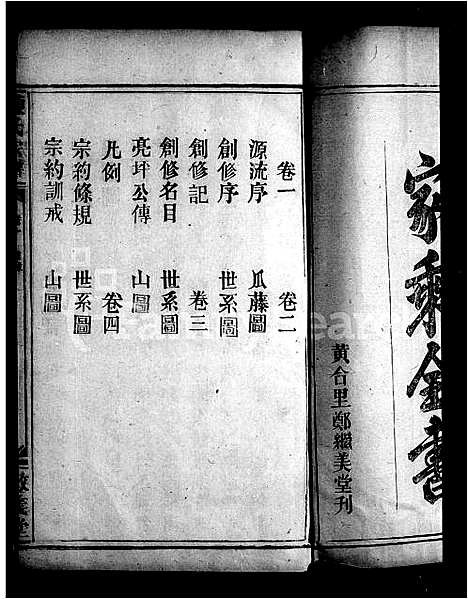 家乘全書
黃合里鄭繼美堂刊
卷一 卷二
源流序 瓜藤圖
創修序 世系圖
創修記 卷三
創修名目 世系圖
亮坪公傳 山圖
凡例 卷四
宗約條規 世系圖
宗約訓戒 山圖